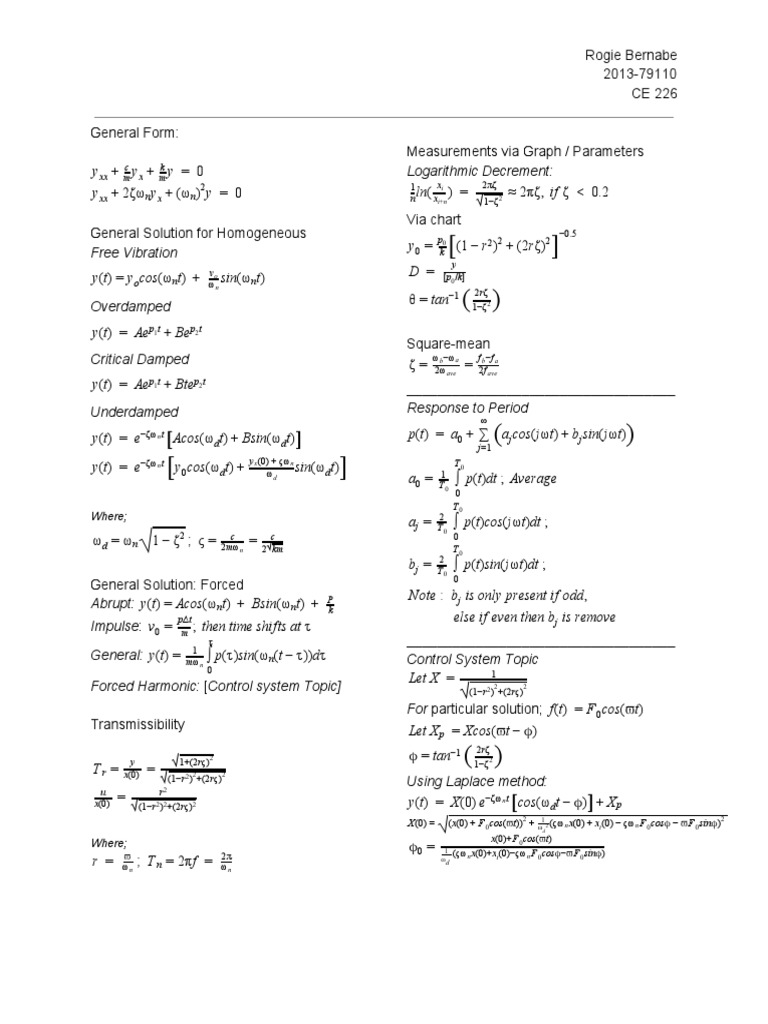 Rogie Bernabe
2013-79110
CE 226
General Form:
y_xx + c/m y_x + k/m y = 0
y_xx + 2ζω_n y_x + (ω_n)² y = 0
General Solution for Homogeneous
Free Vibration
y(t) = y_o cos(ω_n t) + v_o/ω_n sin(ω_n t)
Overdamped
y(t) = Ae^{p₁t} + Be^{p₂t}
Critical Damped
y(t) = Ae^{p₁t} + Bte^{p₂t}
Underdamped
y(t) = e^{−ζω_n t} [Acos(ω_d t) + Bsin(ω_d t)]
y(t) = e^{−ζω_n t} [y_0 cos(ω_d t) + (y_x(0) + ςω_n)/ω_d sin(ω_d t)]
Where;
ω_d = ω_n √(1 − ζ²) ; ς = c/(2mω_n) = c/(2√km)
General Solution: Forced
Abrupt: y(t) = Acos(ω_n t) + Bsin(ω_n t) + P/k
Impulse: v_0 = pΔt/m ; then time shifts at τ
General: y(t) = 1/(mω_n) ∫_0^τ p(τ)sin(ω_n(t − τ))dτ
Forced Harmonic: [Control system Topic]
Transmissibility
T_r = y/x(0) = √(1+(2rς)²) / √((1−r²)²+(2rς)²)
u/x(0) = r² / √((1−r²)²+(2rς)²)
Where;
r = ϖ/ω_n ; T_n = 2πf = 2π/ω_n
Measurements via Graph / Parameters
Logarithmic Decrement:
1/n ln(x_i/x_{i+n}) = 2πζ/√(1−ζ²) ≈ 2πζ, if ζ < 0.2
Via chart
y_0 = p_0/k [(1 − r²)² + (2rζ)²]^{−0.5}
D = y/[p_0/k]
θ = tan⁻¹ (2rζ/(1−ζ²))
Square-mean
ζ = (ω_b−ω_a)/(2ω_ave) = (f_b−f_a)/(2f_ave)
Response to Period
p(t) = a_0 + ∑_{j=1}^{∞} (a_j cos(jωt) + b_j sin(jωt))
a_0 = 1/T_0 ∫_0^{T_0} p(t)dt ; Average
a_j = 2/T_0 ∫_0^{T_0} p(t)cos(jωt)dt ;
b_j = 2/T_0 ∫_0^{T_0} p(t)sin(jωt)dt ;
Note : b_j is only present if odd,
else if even then b_j is remove
Control System Topic
Let X = 1/√((1−r²)²+(2rς)²)
For particular solution; f(t) = F_0 cos(ϖt)
Let X_p = Xcos(ϖt − φ)
φ = tan⁻¹ (2rζ/(1−ζ²))
Using Laplace method:
y(t) = X(0) e^{−ζω_n t} [cos(ω_d t − φ)] + X_p
X(0) = √((x(0) + F_0 cos(ϖt))² + 1/ω_d² (ςω_n x(0) + x_t(0) − ςω_n F_0 cosφ − ϖF_0 sinφ)²
φ_0 = (x(0)+F_0 cos(ϖt)) / (1/ω_d (ςω_n x(0)+x_t(0)−ςω_n F_0 cosφ−ϖF_0 sinφ)